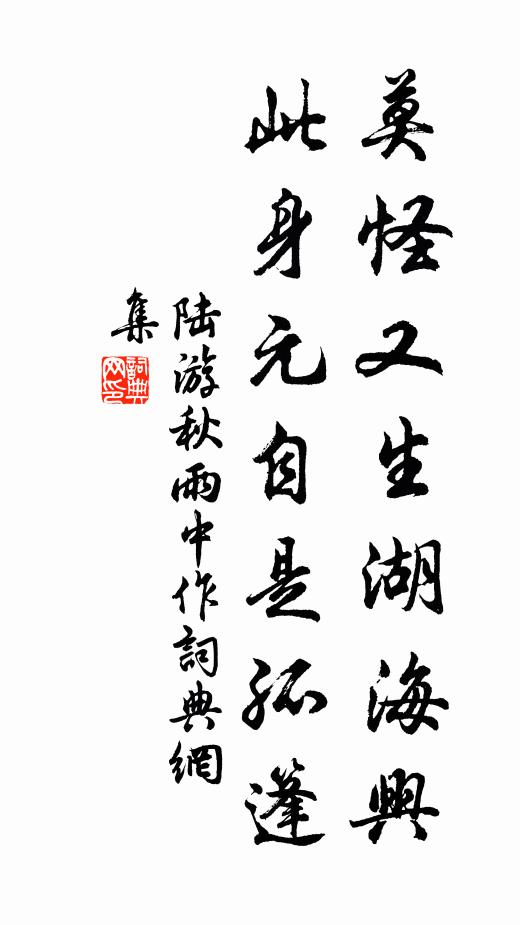 莫怪又生湖海興
此身元自是孤篷
陸游秋雨中作詞典網
集
詞典
网印